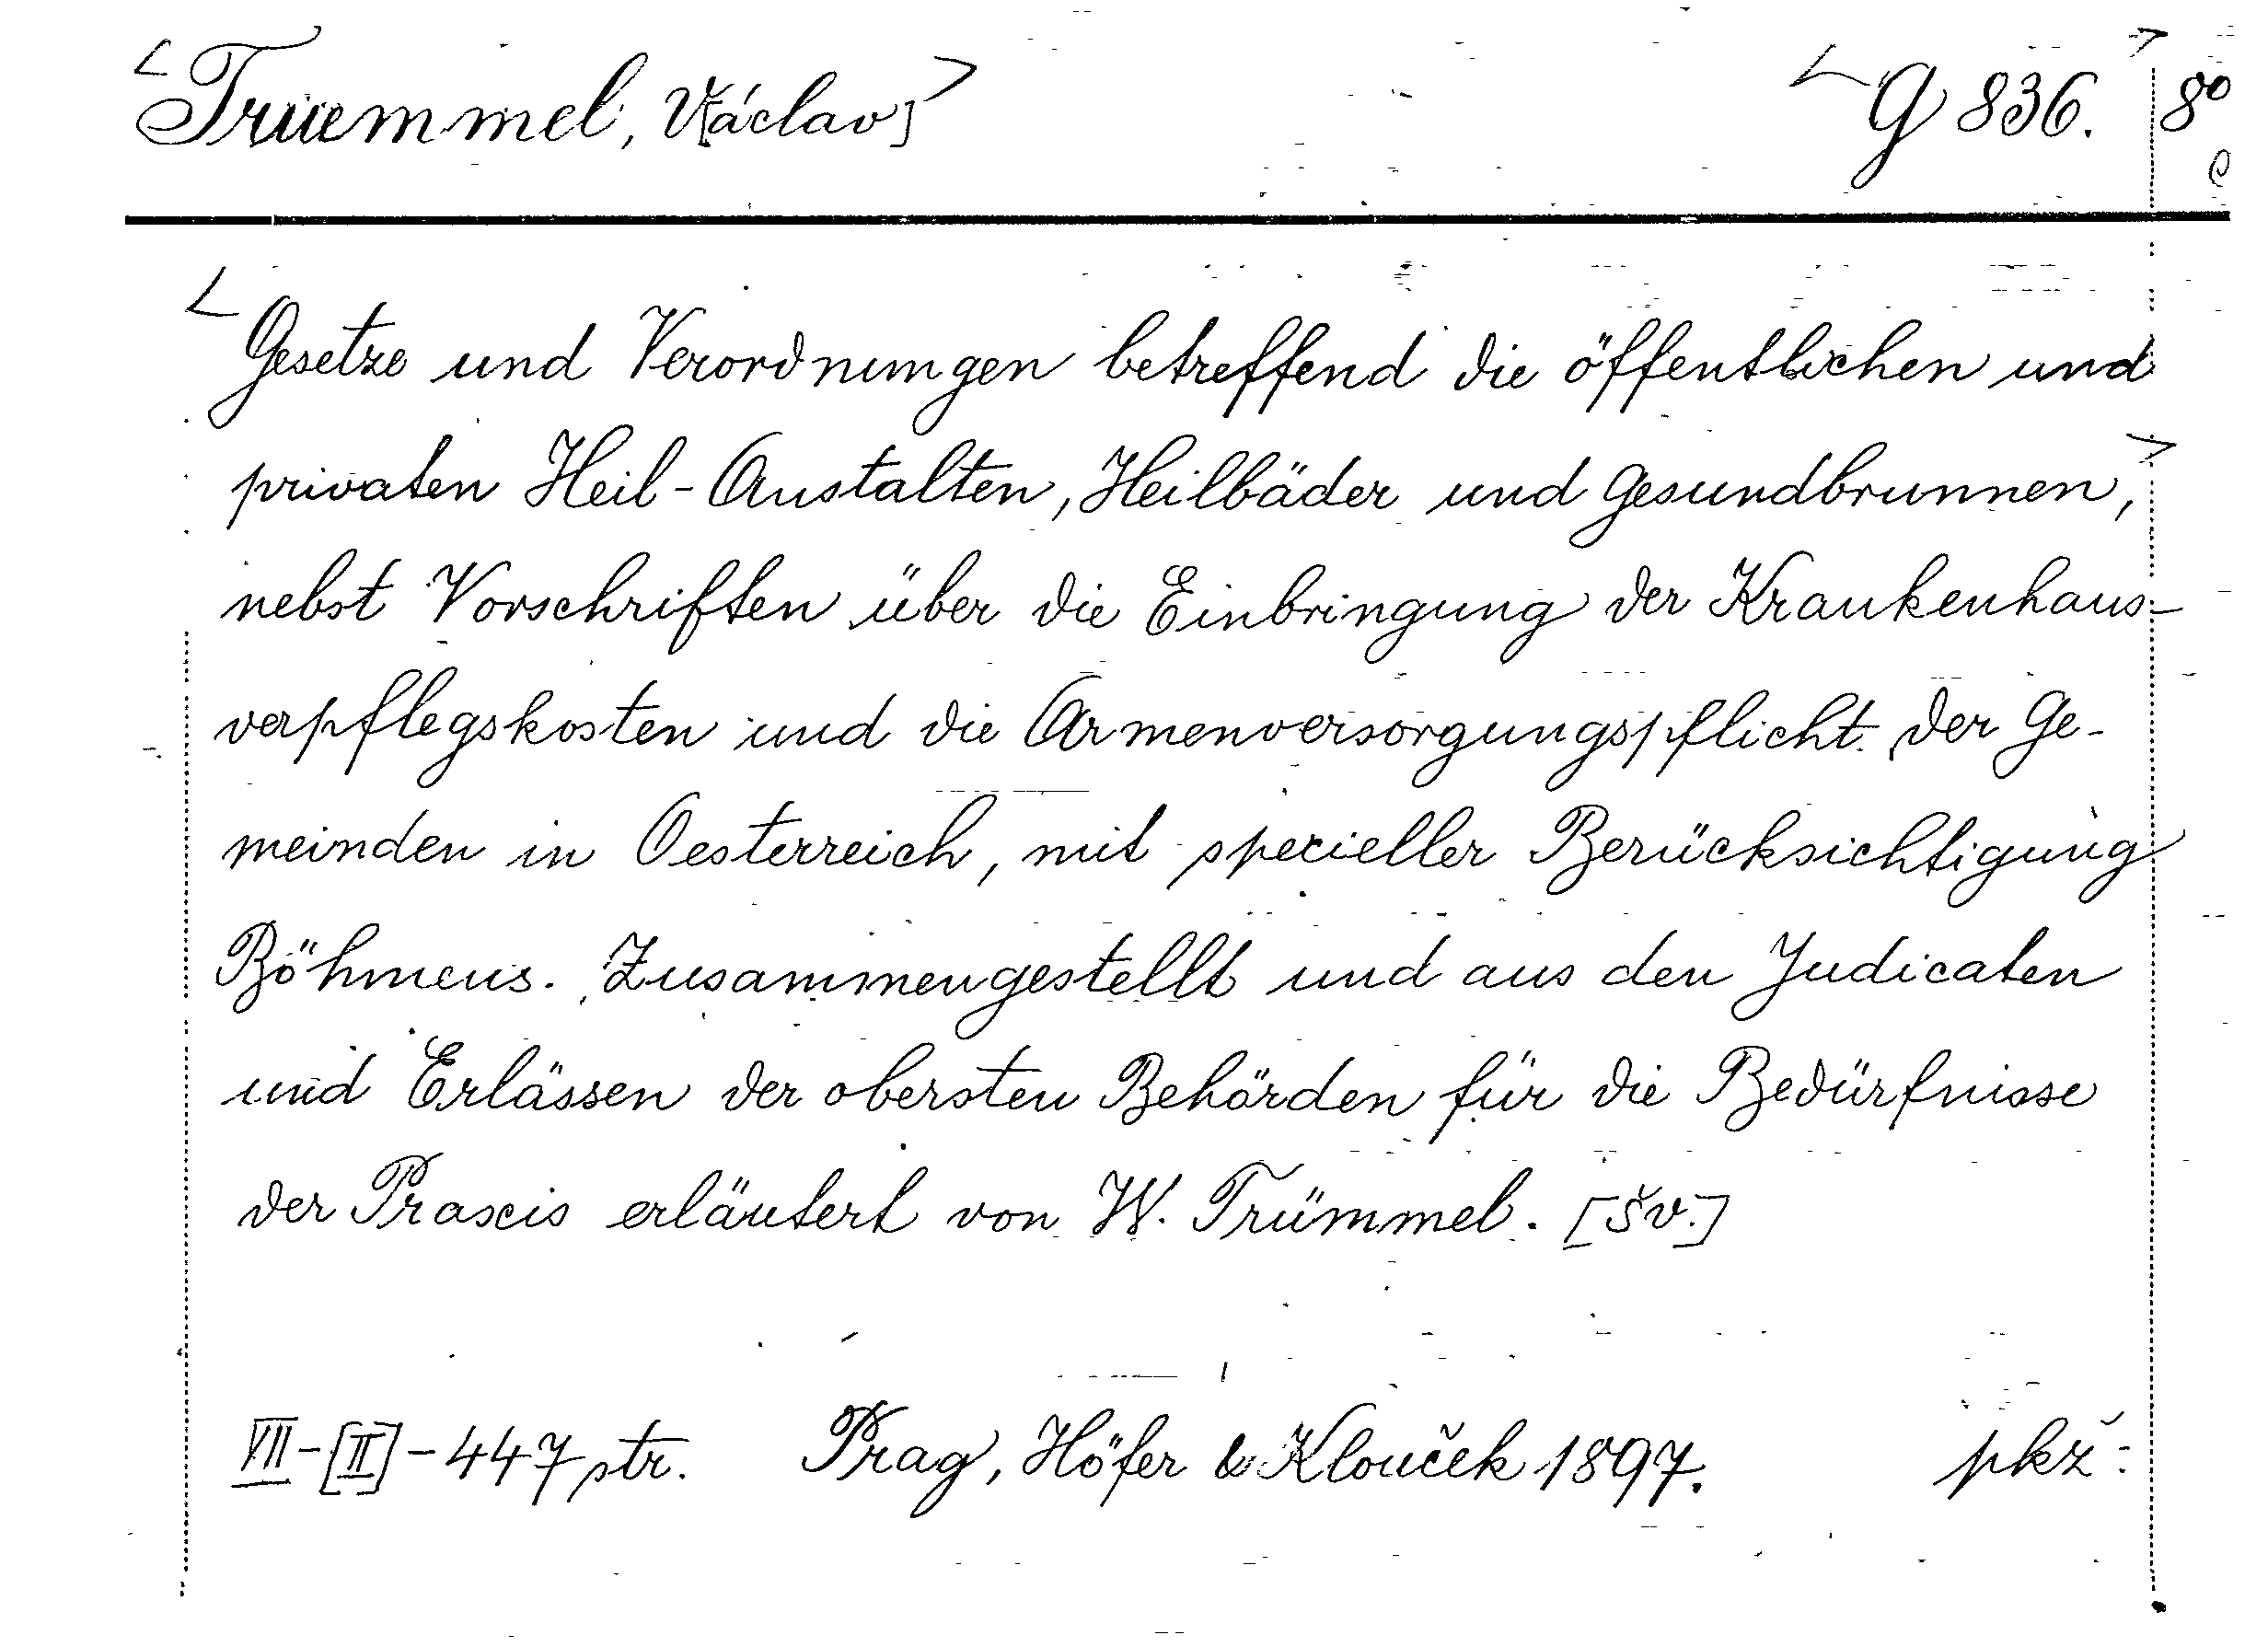 <Truemmel, V[áclav]> <G 836.> 8°
<Gesetze und Verordnungen betreffend die öffentlichen und
privaten Heil-Anstalten, Heilbäder und Gesundbrunnen,>
nebst Vorschriften über die Einbringung der Krankenhaus-
verpflegskosten und die Armenversorgungspflicht der Ge-
meinden in Oesterreich, mit specieller Berücksichtigung
Böhmens. Zusammengestellt und aus den Judicaten
und Erlässen der obersten Behörden für die Bedürfnisse
der Praxis erläutert von W. Trümmel. [Šv.]
VII-[II]-447 str. Prag, Höfer & Klouček 1897. pkž.